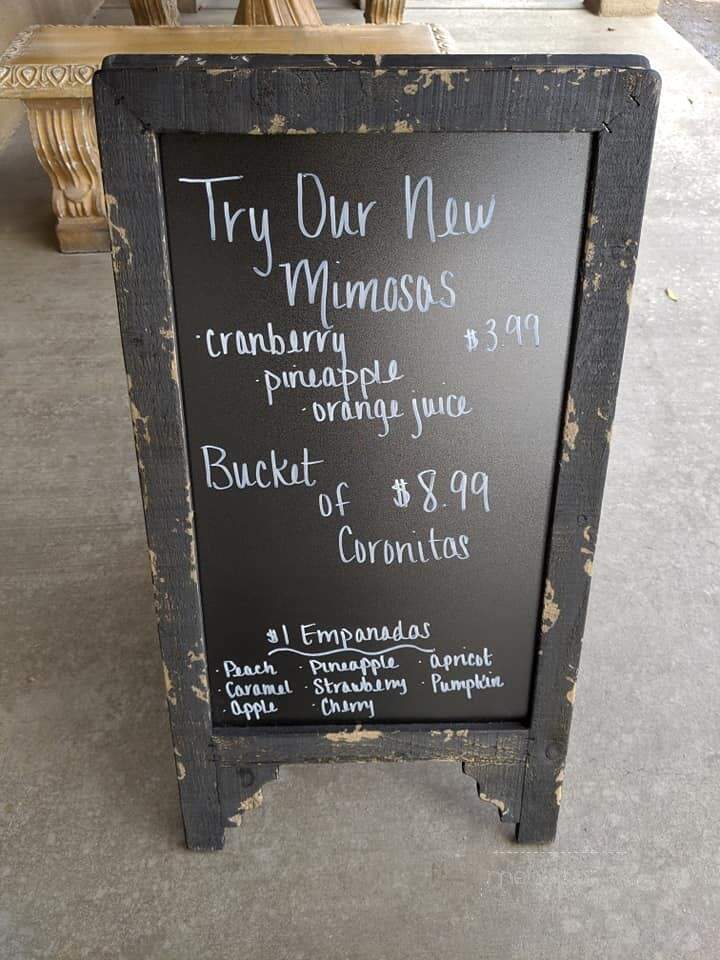 Try Our New
Mimosas
· cranberry $3.99
· pineapple
· orange juice
Bucket
of $8.99
Coronitas
$1 Empanadas
· Peach · Pineapple · apricot
· Caramel · Strawberry · Pumpkin
· apple · Cherry